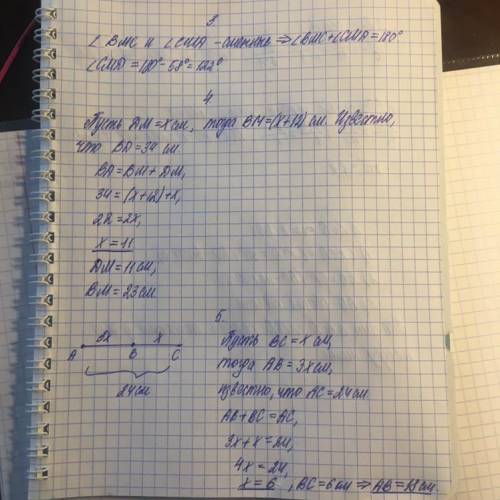 3
∠BMC и ∠CMA - смежные ⇒ ∠BMC+∠CMA=180°
∠CMA=180°-58°=122°
4
Пусть DM=x см, тогда BM=(x+12) см. Известно,
что BD=34 см.
BD=BM+DM,
34=(x+12)+x,
22=2x,
x=11
DM=11 см,
BM=23 см
5.
3x x
A B C
24 см
Пусть BC=x см,
тогда AB=3x см,
известно, что AC=24 см.
AB+BC=AC,
3x+x=24,
4x=24,
x=6, BC=6 см ⇒ AB=18 см.